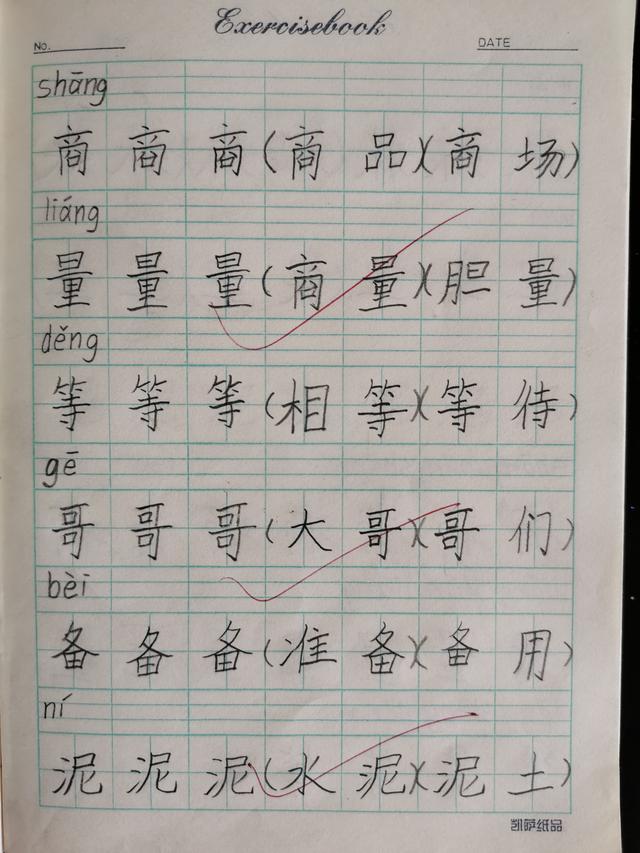 Exercisebook
No. DATE
shāng
商 商 商(商 品)(商 场)
liáng
量 量 量(商 量)(胆 量)
děng
等 等 等(相 等)(等 待)
gē
哥 哥 哥(大 哥)(哥 们)
bèi
备 备 备(准 备)(备 用)
ní
泥 泥 泥(水 泥)(泥 土)
凯萨纸品